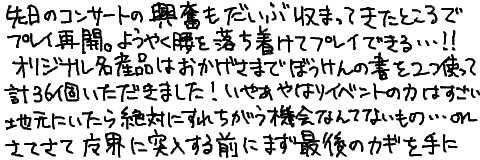 先日のコンサートの興奮もだいぶ収まってきたところで
プレイ再開。ようやく腰を落ち着けてプレイできる…!!
オリジナル名産品はおかげさまでぼうけんの書を2つ使って
計36個いただきました！いやぁやはりイベントの力はすごい
地元にいたら絶対にすれちがう機会なんてないもの…のれ
さてさて魔界に突入する前にまず最後のカギを手に